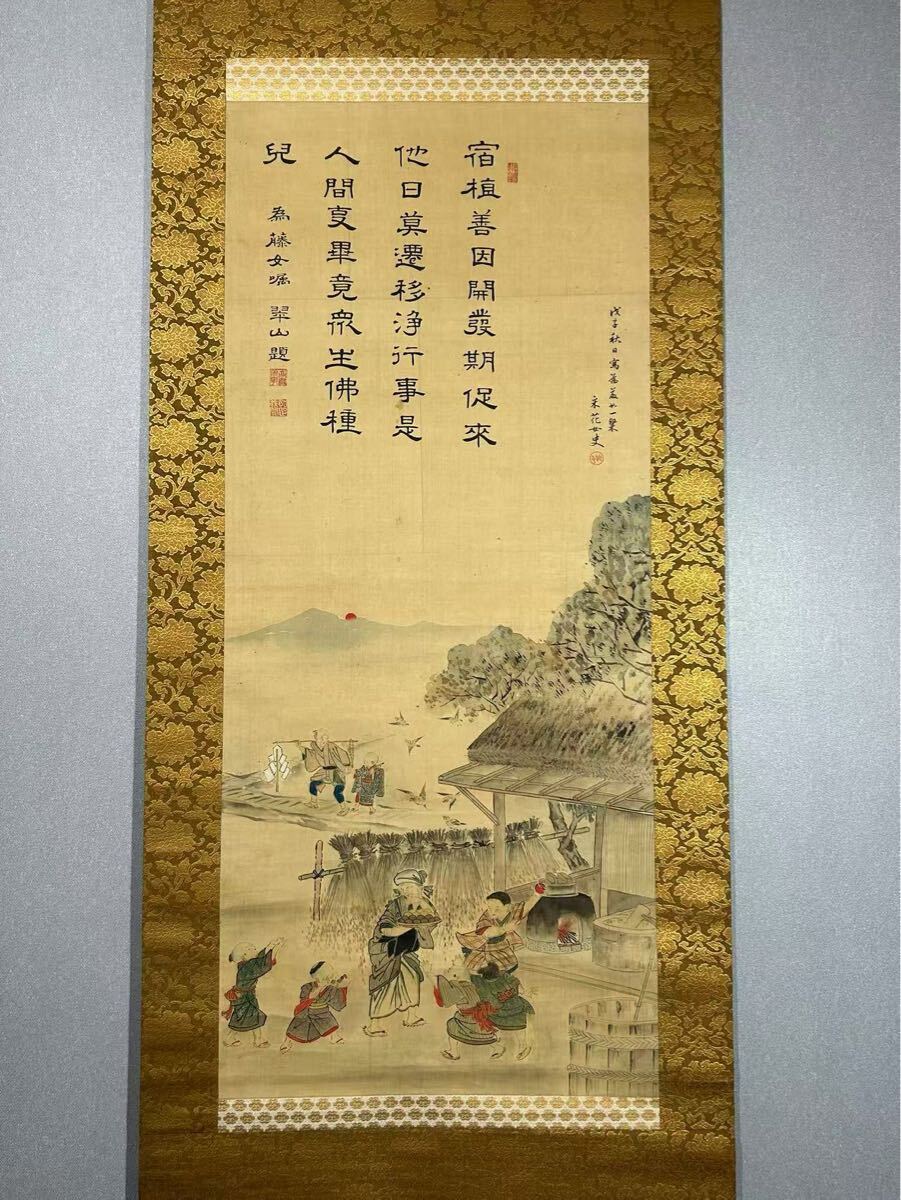 戊子秋日寫
采花女史
宿植善因開發期促來
他日莫遷移浄行事是
人間叓畢竟衆生佛種
兒
為藤女囑 翠山題